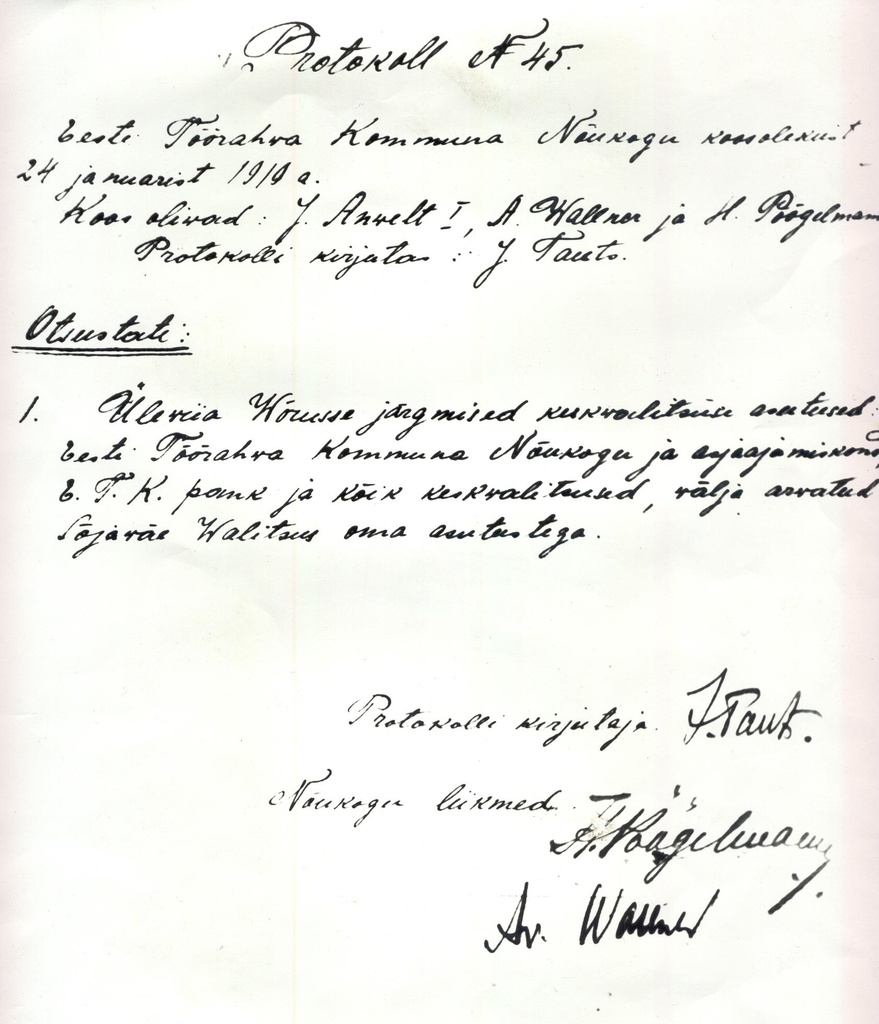 Protokoll № 45.
Eesti Töörahwa Kommuna Nõukogu koosolekust
24 januarist 1919 a.
Koos oliwad: J. Anwelt I, A. Wallner ja H. Pöögelmann
Protokolli kirjutas: J. Tauts.
Otsustati:
1. Üleviia Wõrusse järgmised keskwalitsuse asutused:
Eesti Töörahwa Kommuna Nõukogu ja asjaajamiskond,
E. T. K. pank ja kõik keskwalitsused, välja arvatud
Sõjaväe Walitsus oma asutustega.
Protokolli kirjutaja J. Tauts.
Nõukogu liikmed
H. Pöögelmann
Ar. Wallner